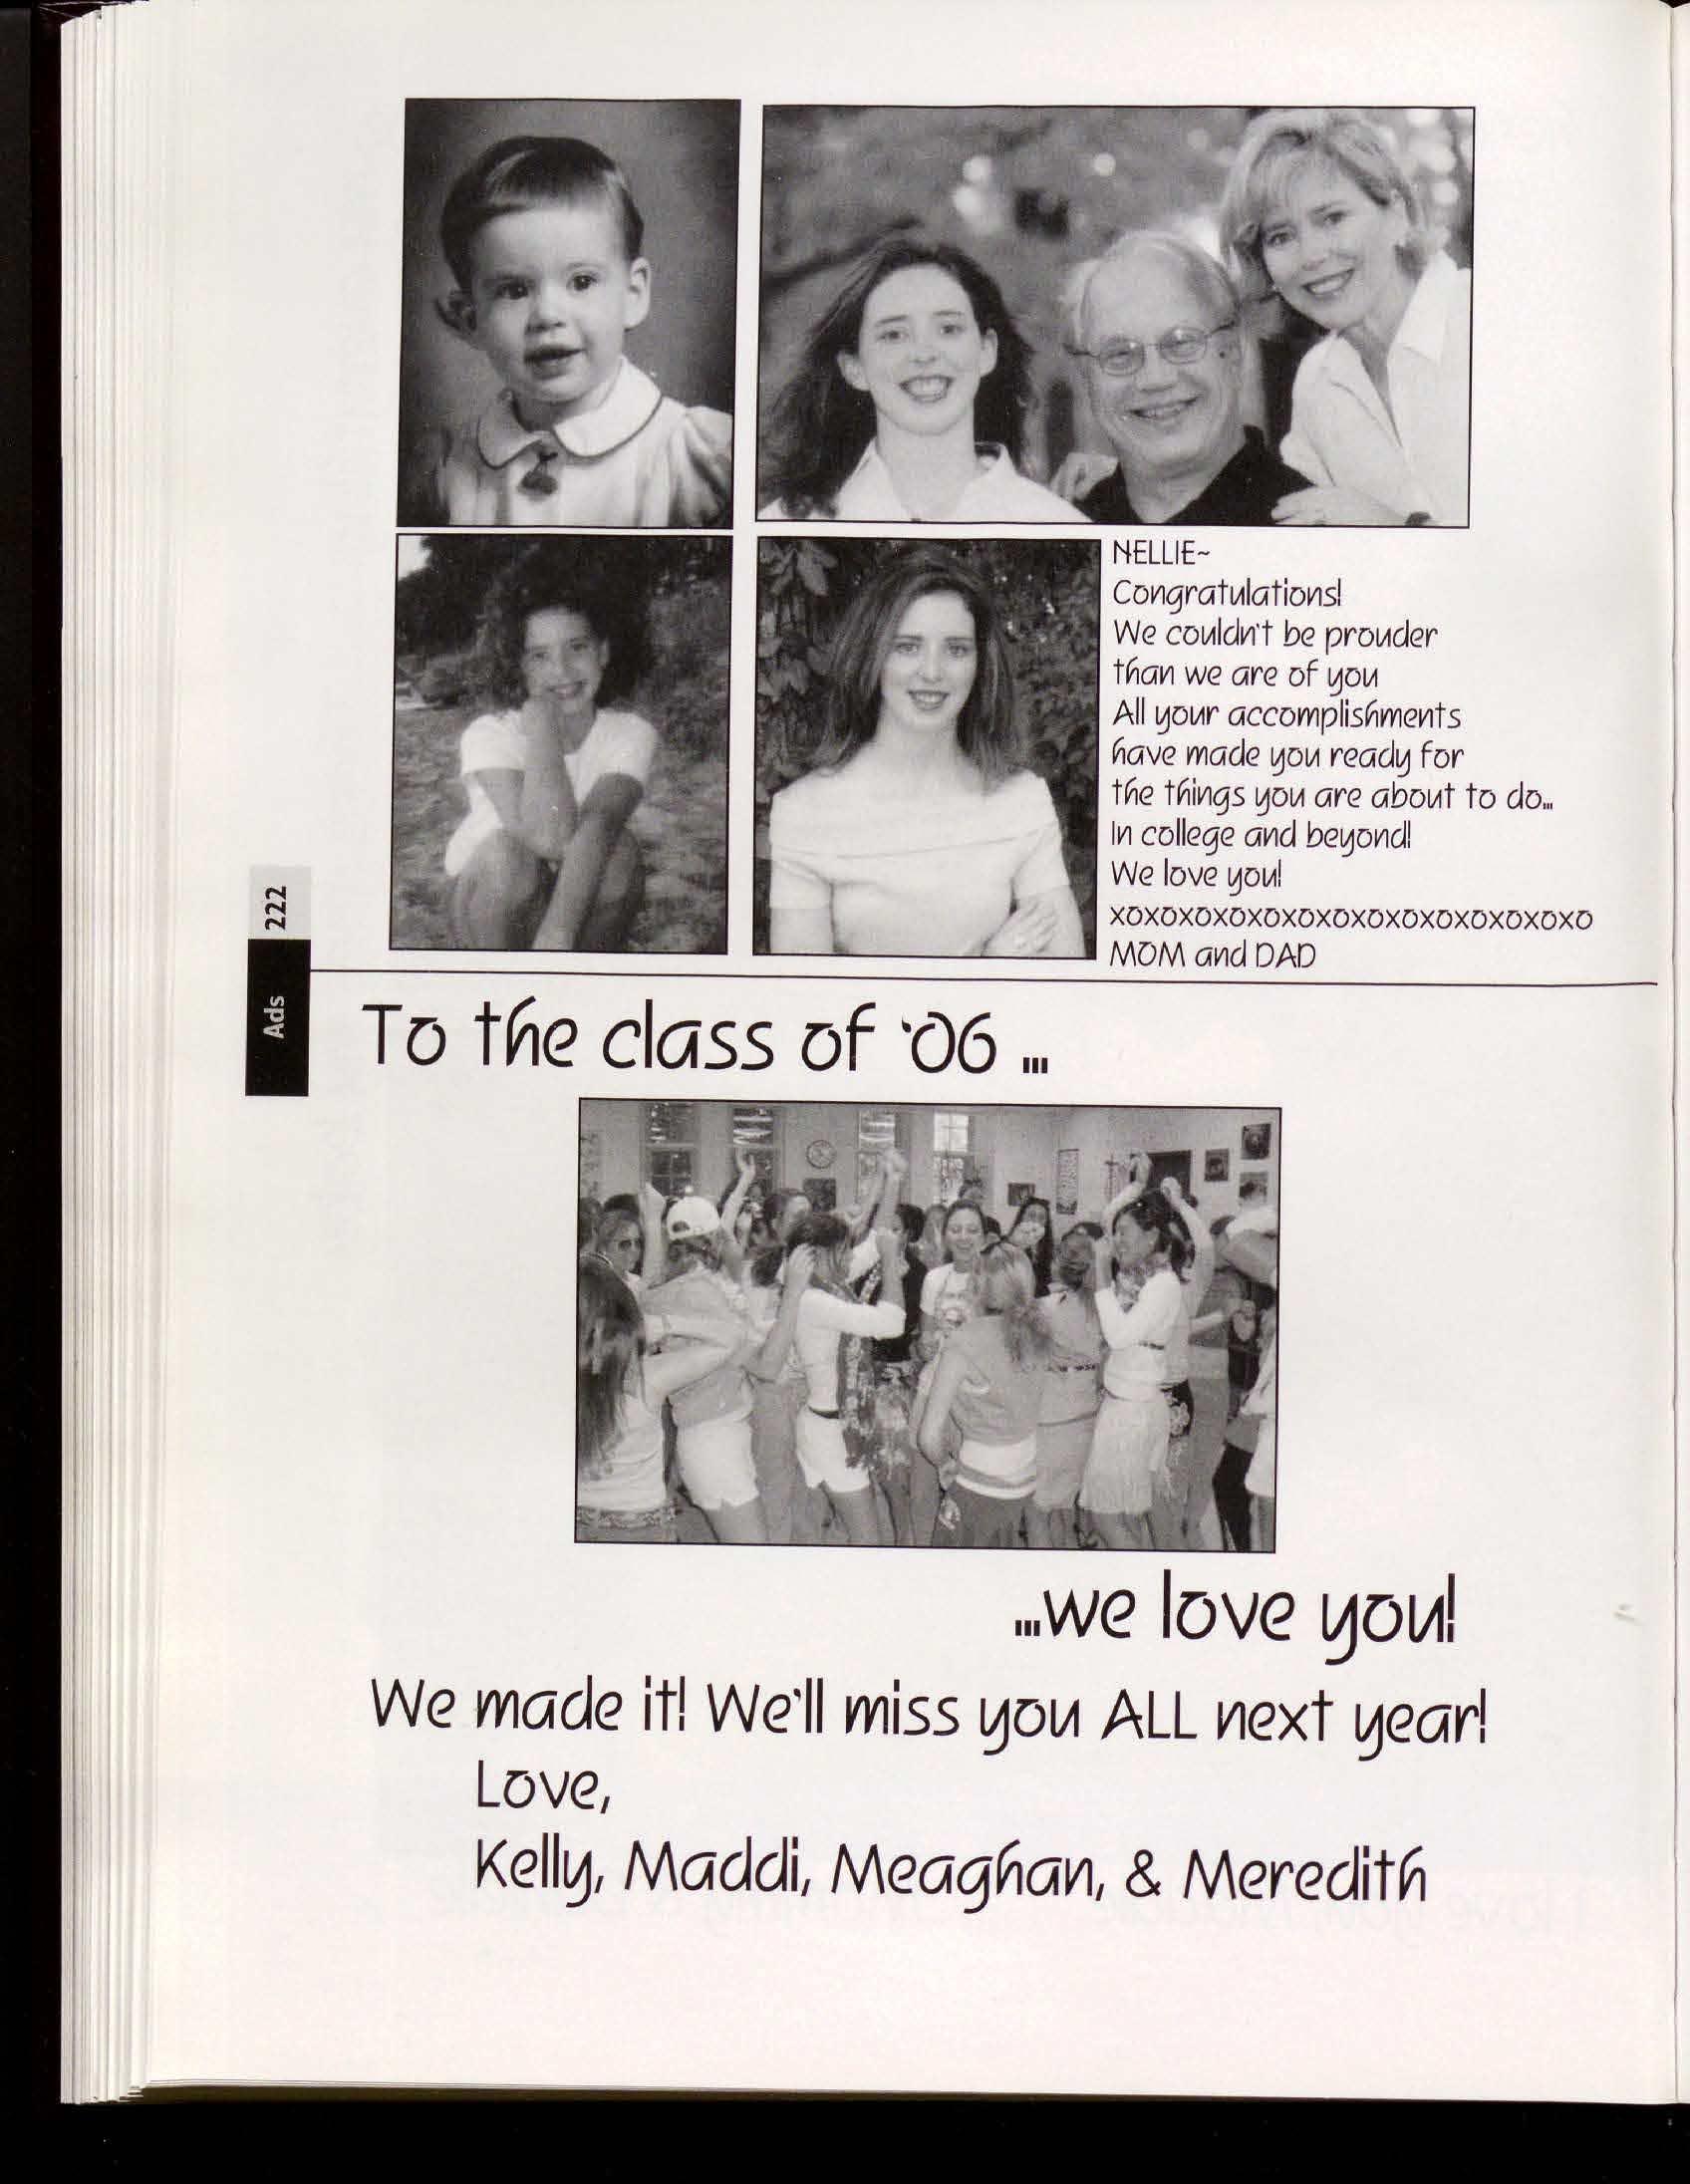 NELLIE~
Congratulations!
We couldn't be prouder
than we are of you
All your accomplishments
have made you ready for
the things you are about to do...
In college and beyond!
We love you!
xoxoxoxoxoxoxoxoxoxoxoxoxoxo
MOM and DAD
222
Ads
To the class of '06 ...
...we love you!
We made it! We'll miss you ALL next year!
Love,
Kelly, Maddi, Meaghan, & Meredith